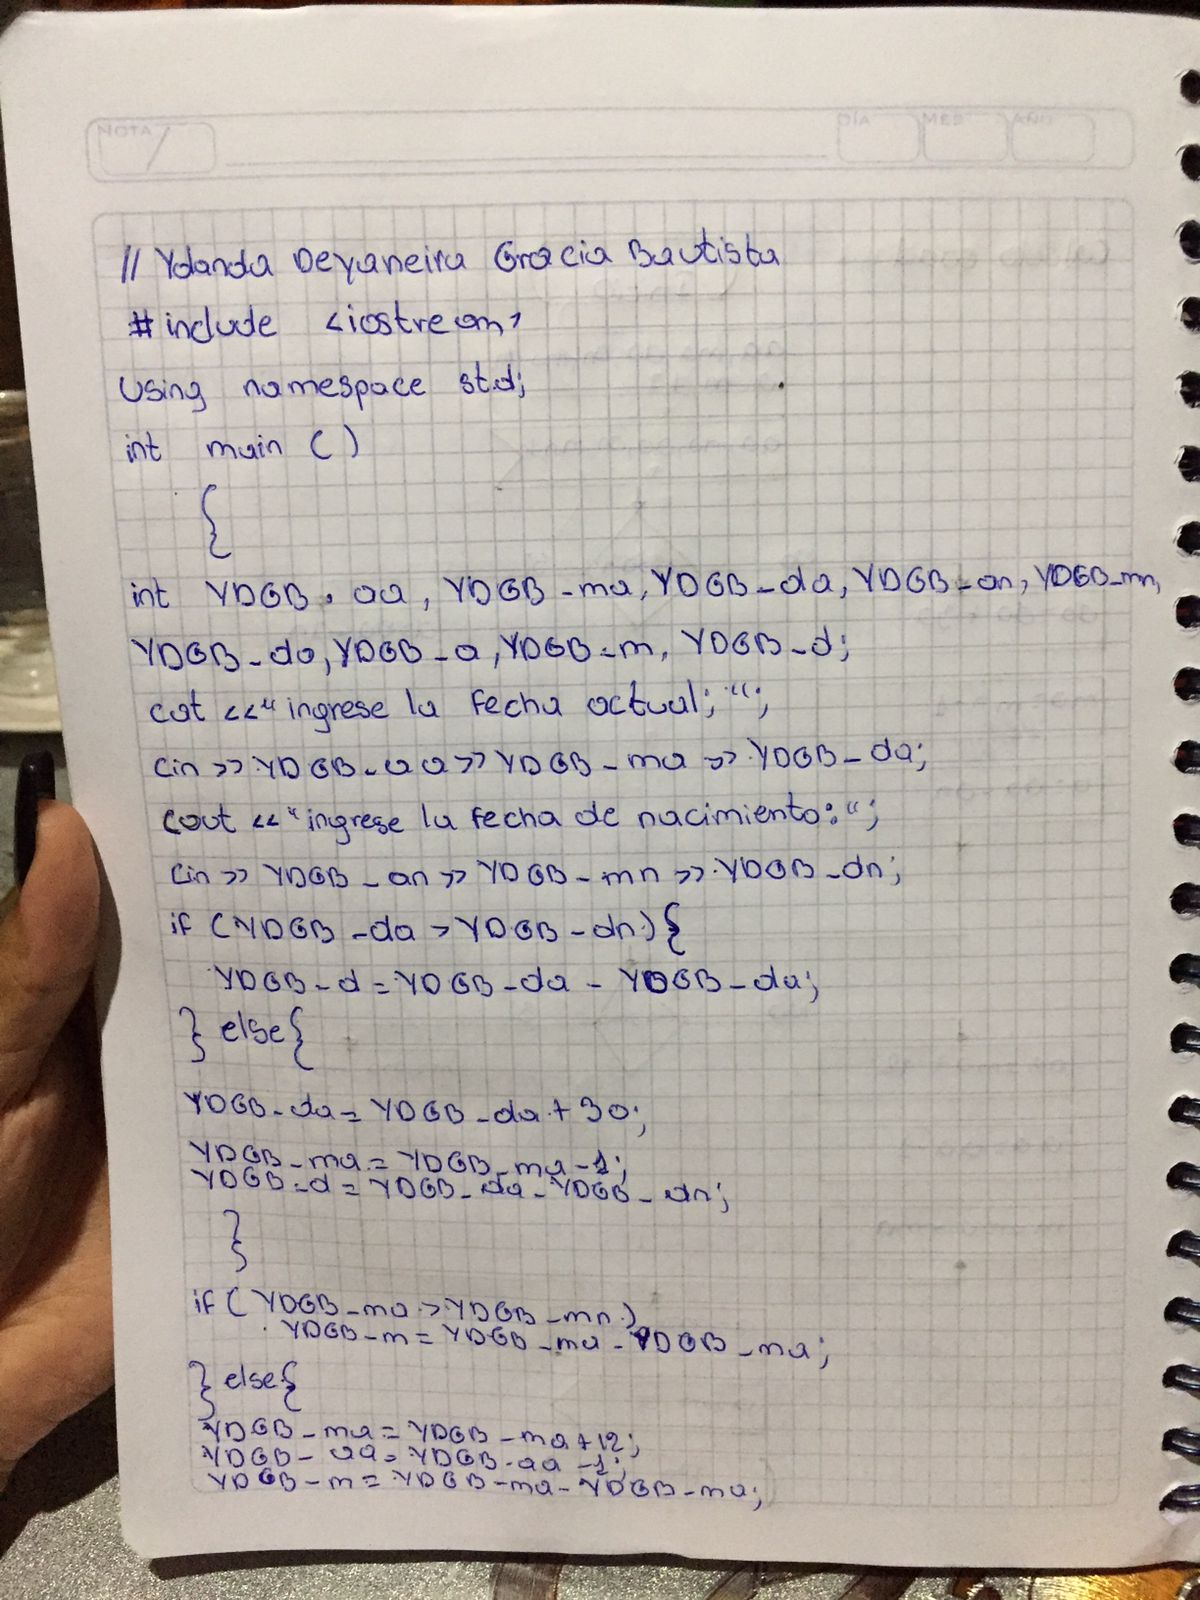 // Yolanda Deyaneira Gracia Bautista
#include <iostream>
Using namespace std;
int main ()
{
int YDGB.aa, YDGB-ma, YDGB-da, YDGB-an, YDGB-mn,
YDGB-do, YDGB-a, YDGB-m, YDGB-d;
cat <<"ingrese la fecha actual; ";
cin >> YDGB-aa >> YDGB-ma >> YDGB-da;
cout << "ingrese la fecha de nacimiento: ";
cin >> YDGB-an >> YDGB-mn >> YDGB-dn;
if (YDGB-da > YDGB-dn) {
YDGB-d = YDGB-da - YDGB-da;
} else {
YDGB-da = YDGB-da + 30;
YDGB-ma = YDGB-ma - 1;
YDGB-d = YDGB-da - YDGB-dn;
}
if ( YDGB-ma > YDGB-mn )
YDGB-m = YDGB-ma - YDGB-ma;
} else {
YDGB-ma = YDGB-ma + 12;
YDGB-aa = YDGB-aa - 1;
YDGB-m = YDGB-ma - YDGB-ma;